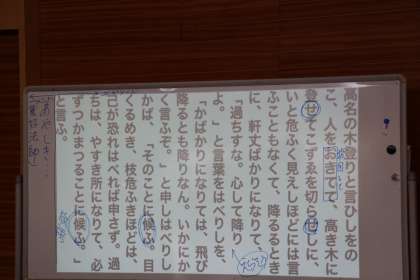 高名の木登りと言ひしをの
こ、人をおきてて、高き木に
登せてこずゑを切らせしに、
いと危ふく見えしほどには言
ふこともなくて、降るるとき
に、軒丈ばかりになりて、
「過ちすな。心して降り
よ。」と言葉をはべりしを、
「かばかりになりては、飛び
降るとも降りなん。いかにか
く言ふぞ。」と申しはべりし
かば、「そのことに候ふ。目
くるめき、枝危ふきほどは、
己が恐れはべれば申さず。過
ちは、やすき所になりて、必
ずつかまつることに候ふ。」
と言ふ。